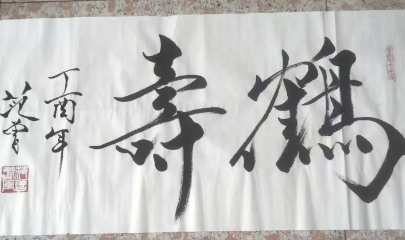 鶴壽
丁酉年
范曾